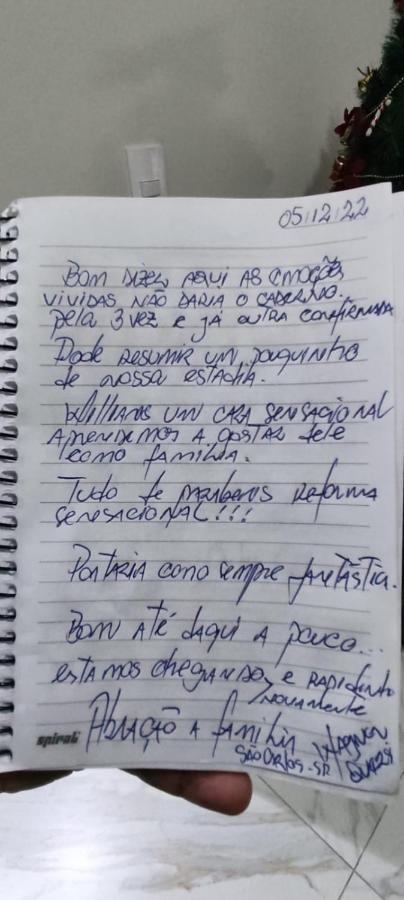 05/12/22
Bom dizer aqui as emoções
vividas não daria o caderno.
pela 3 vez e já outra confirmada
Pode resumir um pouquinho
de nossa estadia.
Willians um cara sensacional
Aprendemos a gostar dele
como família.
Tudo de parabens reforma
sensacional!!!
Portaria como sempre fantástica.
Bom até daqui a pouco...
estamos chegando, e rapidinho
novamente
Abração a família Wagner
São Carlos-SP
spiral